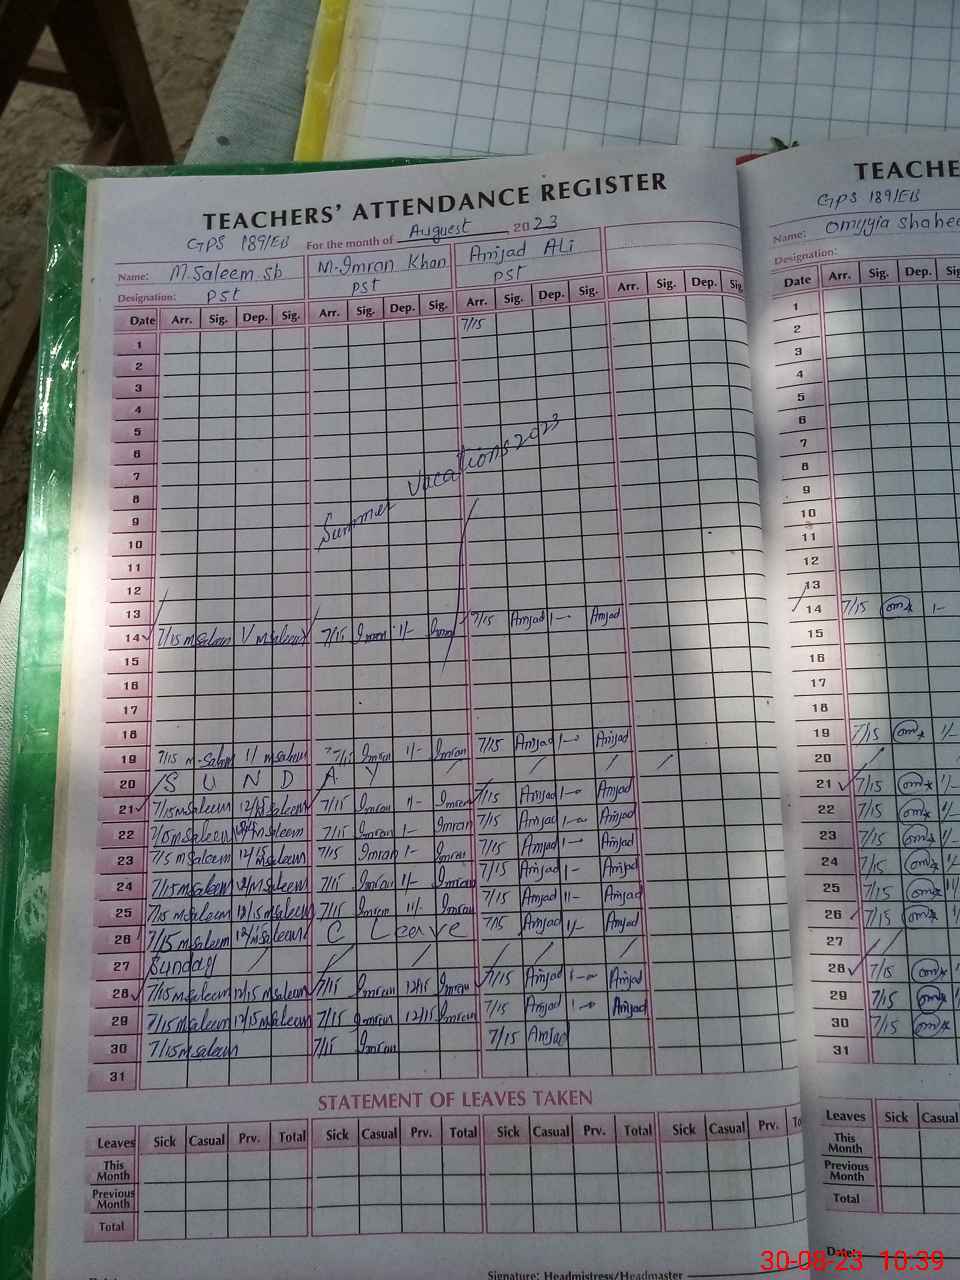 TEACHERS' ATTENDANCE REGISTER
GPS 189/EB For the month of Auguest 2023
Name: M.Saleem.sb M.Imran Khan Amjad ALi
Designation: Pst pst pst
Date Arr. Sig. Dep. Sig. Arr. Sig. Dep. Sig. Arr. Sig. Dep. Sig. Arr. Sig. Dep. Sig.
7/15
1
2
3
4
5
6
7
8
9
10
11
12
13
Summer Vacations 2023
14 7/15 MSaleem 1/ MSaleem 7/15 Imran 1/- Imran 7/15 Amjad 1- Amjad
15
16
17
18
19 7/15 M-Saleem 1/ MSaleem 7/15 Imran 1/- Imran 7/15 Amjad 1- Amjad
20 S U N D A Y
21 7/15 MSaleem 12/15 Saleem 7/15 Imran 1/- Imran 7/15 Amjad 1- Amjad
22 7/15 MSaleem MSaleem 7/15 Imran 1- Imran 7/15 Amjad 1- Amjad
23 7/15 MSaleem 12/15 MSaleem 7/15 Imran 1- Imran 7/15 Amjad 1- Amjad
24 7/15 MSaleem 12/ MSaleem 7/15 Imran 1/- Imran 7/15 Amjad 1- Amjad
25 7/15 MSaleem 12/15 MSaleem 7/15 Imran 1/- Imran 7/15 Amjad 1/- Amjad
26 7/15 MSaleem 12/ MSaleem C Leave 7/15 Amjad 1/- Amjad
27 Sunday
28 7/15 MSaleem 12/15 MSaleem 7/15 Imran 12/15 Imran 7/15 Amjad 1- Amjad
29 7/15 MSaleem 12/15 MSaleem 7/15 Imran 12/15 Imran 7/15 Amjad 1- Amjad
30 7/15 MSaleem 7/15 Imran 7/15 Amjad
31
STATEMENT OF LEAVES TAKEN
Leaves Sick Casual Prv. Total Sick Casual Prv. Total Sick Casual Prv. Total Sick Casual Prv.
This Month
Previous Month
Total
Signature: Headmistress/Headmaster
GPS 189/EB
Name: Omyyia
Designation:
Date Arr. Sig. Dep.
1
2
3
4
5
6
7
8
9
10
11
12
13
14 7/15 om 1-
15
16
17
18
19 7/15 om 1/-
20
21 7/15 om 1/-
22 7/15 om 1/-
23 7/15 om 1/-
24 7/15 om 1/-
25 7/15 om 1/-
26 7/15 om 1/-
27
28 7/15 om 1/-
29 7/15 om 1/-
30 7/15 om
31
Leaves Sick Casual
This Month
Previous Month
Total
Date:
30-08-23 10:39